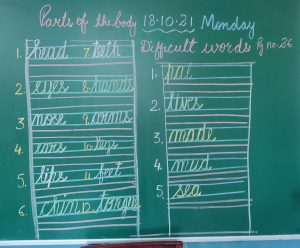 Parts of the body 18.10.21 Monday
1. head 7. teeth
2. eyes 8. hands
3. nose 9. arms
4. ears 10. legs
5. lips 11. feet
6. chin 12. tongue
Difficult words Pg no. 26
1. pal
2. lives
3. made
4. mud
5. sea